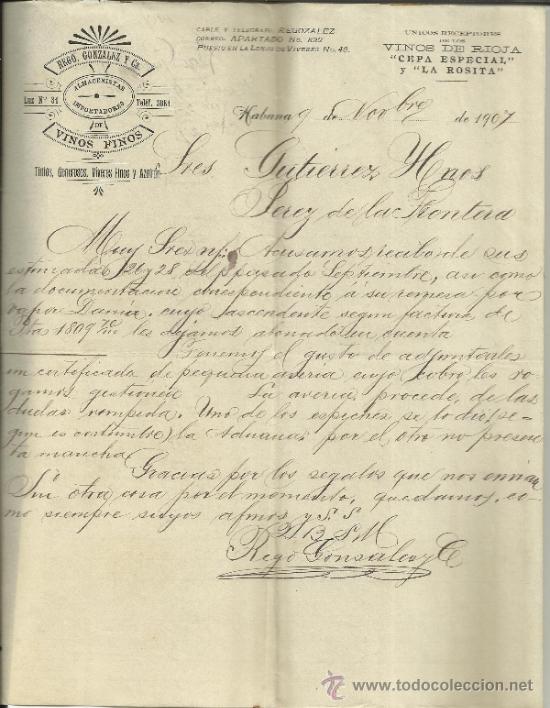 REGO, GONZALEZ Y Ca.
ALMACENISTAS
IMPORTADORES
DE
VINOS FINOS
Luz No 31
Teléf.
Tintos, Generosos, Víveres Finos y
CABLE Y TELEGRAFO: REGOZALEZ
CORREO: APARTADO No.
PUESTO EN LA LONJA DE VIVERES No. 48.
UNICOS RECEPTORES
DE LOS
VINOS DE RIOJA
"CEPA ESPECIAL"
y "LA ROSITA"
Habana 9 de Novbre de 1907
Sres Gutiérrez Hnos
Jerez de la Frontera
Muy Sres ntros: Acusamos recibo de sus
estimadas 26 y 28 de pasado Septiembre, asi como
la documentacion correspondiente á su remesa por
vapor cuyo ascendente segun factura de
Pta 1809 les dejamos abonado en cuenta
Tenemos el gusto de adjuntarles
un certificado de pequeña averia cuyo cobro les ro-
gamos gestionen La averia procede, de las
rompida. Uno de los espiches se lo dió (se-
gun es costumbre) la Aduana, por el otro no presen-
ta mancha
Gracias por los regalos que nos envian
Sin otra cosa por el momento, quedamos, co-
mo siempre suyos afmos y S. S.
Q B S M
Rego Gonzalez y C
todocoleccion
www.todocoleccion.net